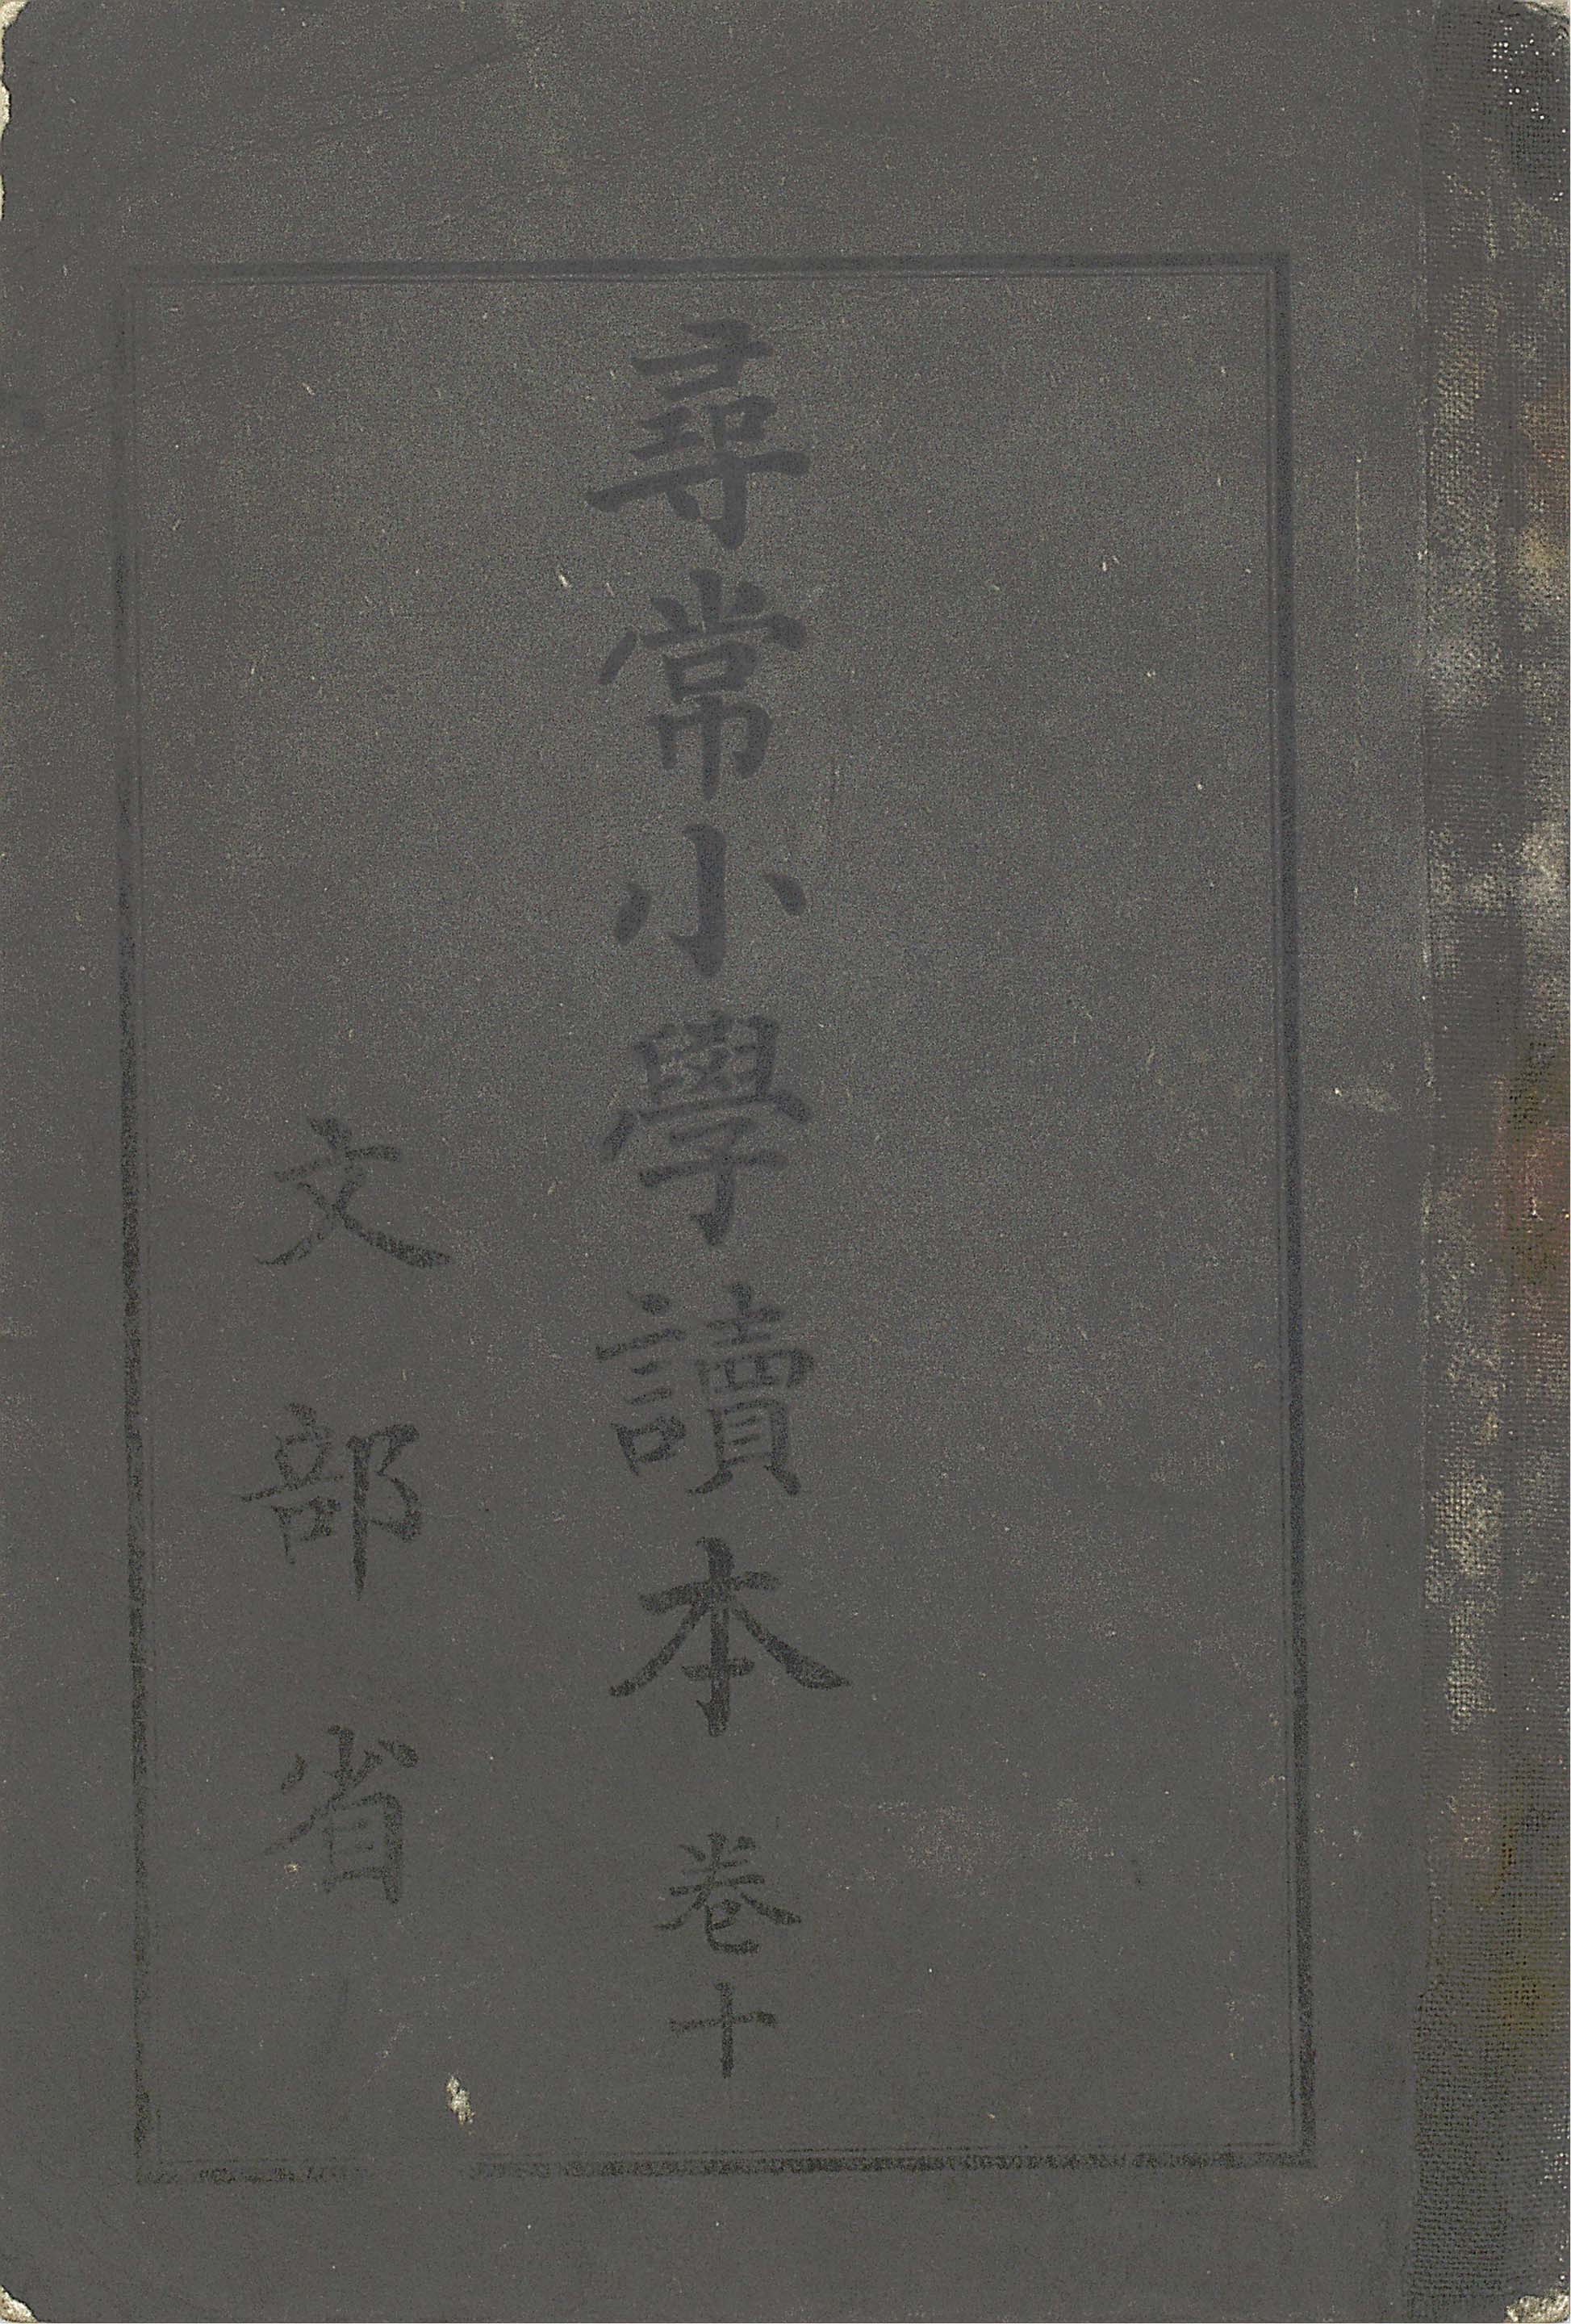 尋常小學讀本 卷十
文部省